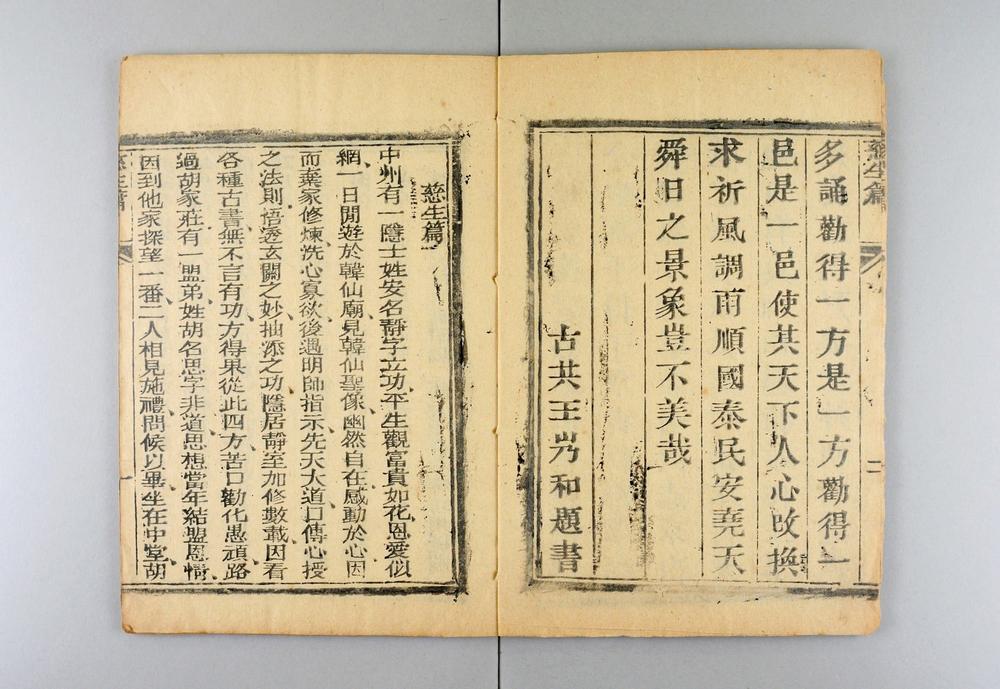 慈生篇
二
多誦勸得一方是一方勸得一
邑是一邑使其天下人心改換
求祈風調雨順國泰民安堯天
舜日之景象豈不美哉
古共王岇和題書
慈生篇
中州有一隱士姓安名靜字立功平生觀富貴如花恩愛似
網一日閒遊於韓仙廟見韓仙聖像幽然自在感動於心因
而棄家修煉洗心寡欲後遇明師指示先天大道口傳心授
之法則悟透玄關之妙抽添之功隱居靜至加修數載因看
各種古書無不言有功方得果從此四方苦口勸化愚頑路
過胡家莊有一盟弟姓胡名思字非道思想當年結盟恩情
因到他家探望一番二人相見施禮問候以畢坐在中堂胡
慈生篇
一